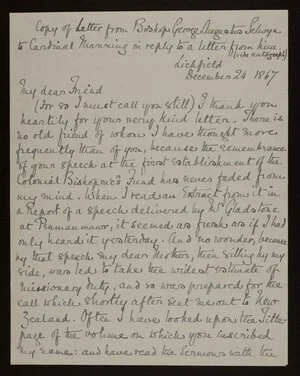 Copy of Letter from Bishop George Augustus Selwyn
to Cardinal Manning in reply to a letter from him
(vide autograph)
Lichfield
December 24 1867
My dear Friend
(For so I must call you still) I thank you
heartily for your very kind letter. There is
no old friend of whom I have thought more
frequently than of you, because the remembrance
of your speech at the first Establishment of the
Colonial Bishoprics' Fund has never faded from
my mind. When I read an Extract from it in
a Report of a speech delivered by Mr Gladstone
at Penmanmawr, it seemed as fresh as if I had
only heard it yesterday. And no wonder, because
by that speech my dear Mother, then sitting by my
side, was led to take the widest estimate of
missionary duty, and so was prepared for the
call which shortly after sent me out to New
Zealand. Often I have looked upon the Title-
page of the volume on which you inscribed
my name: and have read the Sermons with the